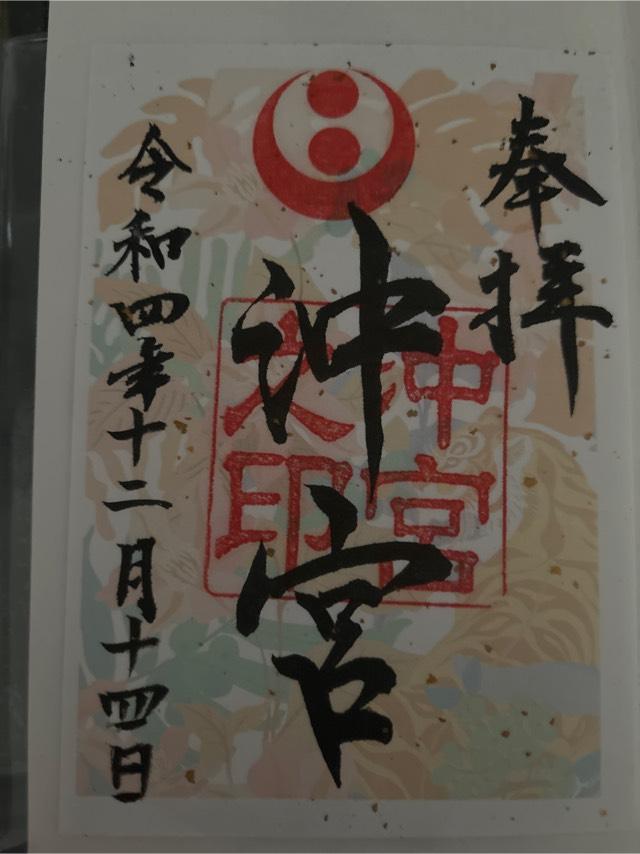 奉拝
沖宮
沖宮
之印
令和四年十二月十四日